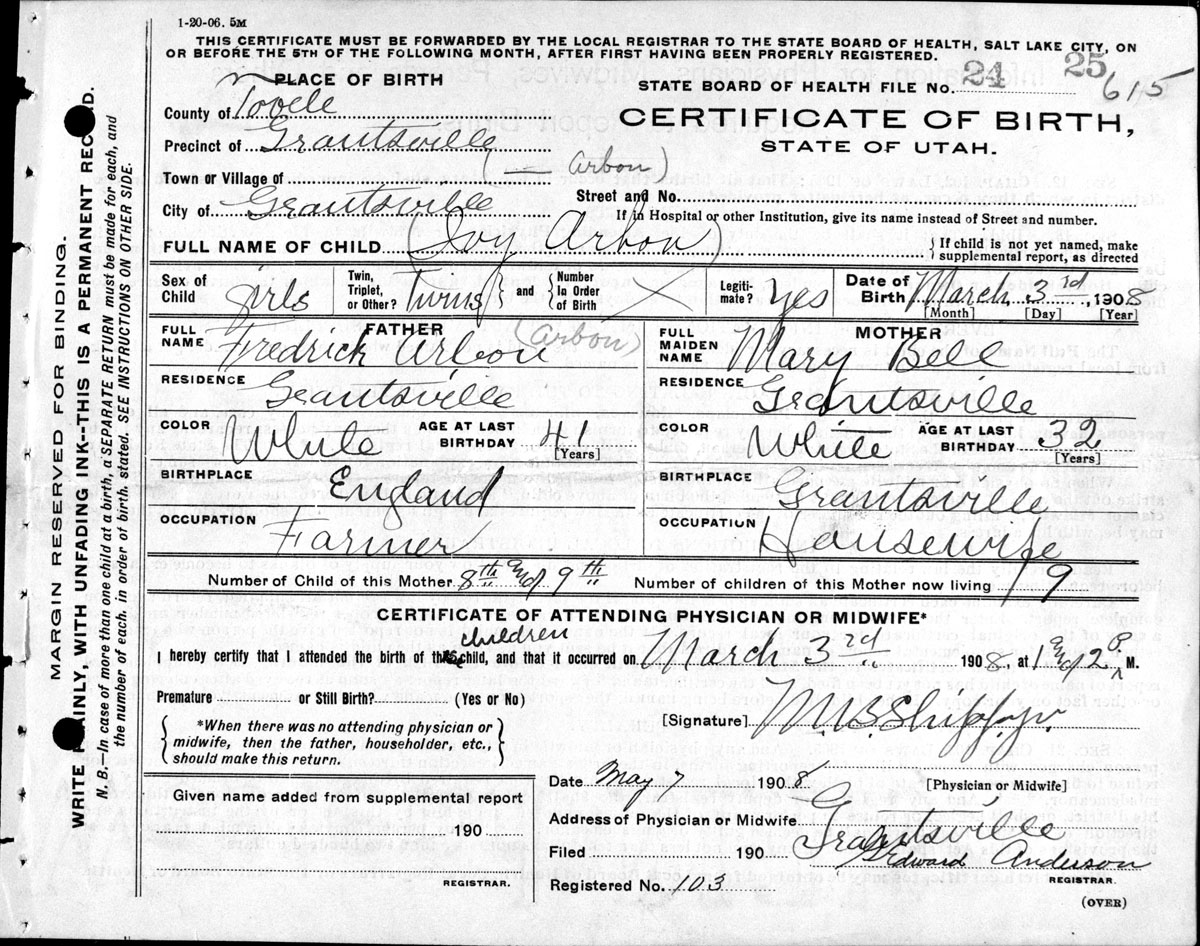 1-20-06. 5M
THIS CERTIFICATE MUST BE FORWARDED BY THE LOCAL REGISTRAR TO THE STATE BOARD OF HEALTH, SALT LAKE CITY, ON
OR BEFORE THE 5TH OF THE FOLLOWING MONTH, AFTER FIRST HAVING BEEN PROPERLY REGISTERED.
PLACE OF BIRTH
STATE BOARD OF HEALTH FILE NO. 24 25 615
County of Tooele
CERTIFICATE OF BIRTH,
STATE OF UTAH.
Precinct of Grantsville
(Arbon)
Town or Village of
Street and No.
City of Grantsville
If in Hospital or other Institution, give its name instead of Street and number.
FULL NAME OF CHILD (Ivy Arbon) { If child is not yet named, make supplemental report, as directed
Sex of Child girls Twin, Triplet, or Other? Twins } and { Number In Order of Birth Legiti-mate? Yes Date of Birth March 3rd, 1908
[Month] [Day] [Year]
FATHER (Arbon) MOTHER
FULL NAME Fredrick Arbon FULL MAIDEN NAME Mary Bell
RESIDENCE Grantsville RESIDENCE Grantsville
COLOR White AGE AT LAST BIRTHDAY 41 [Years] COLOR White AGE AT LAST BIRTHDAY 32 [Years]
BIRTHPLACE England BIRTHPLACE Grantsville
OCCUPATION Farmer OCCUPATION Housewife
Number of Child of this Mother 8th and 9th Number of children of this Mother now living 9
CERTIFICATE OF ATTENDING PHYSICIAN OR MIDWIFE*
children
I hereby certify that I attended the birth of this child, and that it occurred on March 3rd 1908, at 1 and 2 P M.
Premature or Still Birth? (Yes or No)
[Signature]
{ *When there was no attending physician or midwife, then the father, householder, etc., should make this return. }
Date May 7 1908 [Physician or Midwife]
Given name added from supplemental report
190
REGISTRAR.
Address of Physician or Midwife Grantsville
Filed 190 Edward Anderson
REGISTRAR.
Registered No. 103
(OVER)
MARGIN RESERVED FOR BINDING.
WRITE PLAINLY WITH UNFADING INK--THIS IS A PERMANENT RECORD.
N. B.—In case of more than one child at a birth, a SEPARATE RETURN must be made for each, and
the number of each, in order of birth, stated. SEE INSTRUCTIONS ON OTHER SIDE.